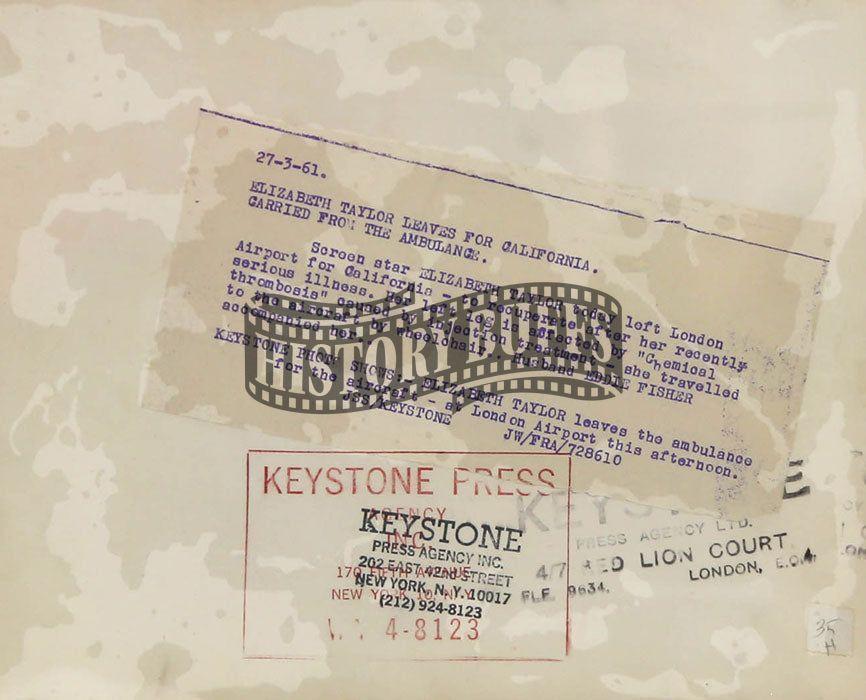 27-3-61.
ELIZABETH TAYLOR LEAVES FOR CALIFORNIA.
CARRIED FROM THE AMBULANCE.
Screen star ELIZABETH TAYLOR today left London
Airport for California - to recuperate after her recently
serious illness. Her left leg is affected by "Chemical
thrombosis" caused by injection treatment - she travelled
to the aircraft by wheelchair.. Husband EDDIE FISHER
accompanied her..
KEYSTONE PHOTO SHOWS:- ELIZABETH TAYLOR leaves the ambulance
for the aircraft - at London Airport this afternoon.
JSS/KEYSTONE JW/FRA/728610
HISTORY
KEYSTONE PRESS
AGENCY
INC.
170 FIFTH AVENUE
NEW YORK 10, N.Y.
4-8123
KEYSTONE
PRESS AGENCY INC.
202 EAST 42nd STREET
NEW YORK, N.Y. 10017
(212) 924-8123
PRESS AGENCY LTD.
4/7 RED LION COURT
LONDON, E.C.4.
FLE 9634.
35
H